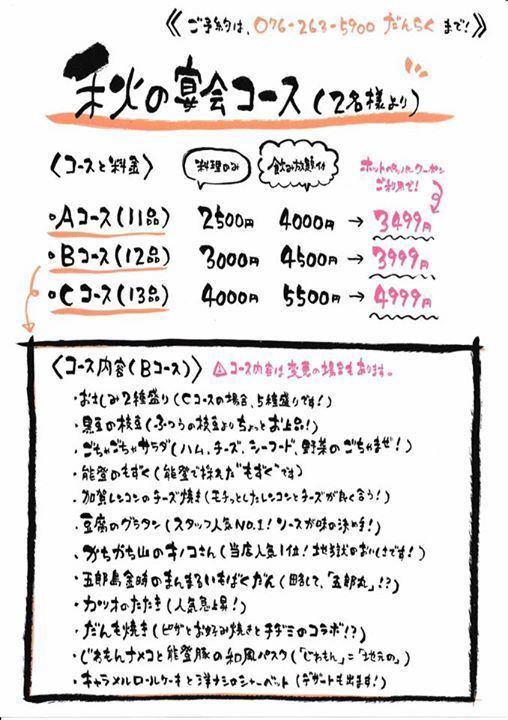 《ご予約は、076-263-5900 だんらくまで!》
秋の宴会コース(2名様より)
〈コースと料金〉 料理のみ 飲み放題付 ホットペッパークーポンご利用で!
・Aコース(11品) 2500円 4000円 → 3499円
・Bコース(12品) 3000円 4500円 → 3999円
・Cコース(13品) 4000円 5500円 → 4999円
〈コース内容(Bコース)〉 ⚠コース内容は変更の場合もあります。
・おさしみ2種盛り(Cコースの場合、5種盛りです!)
・黒豆の枝豆(ふつうの枝豆よりちょっとお上品!)
・ごちゃごちゃサラダ(ハム、チーズ、シーフード、野菜のごちゃまぜ!)
・能登のもずく(能登で採れた"もずく"です)
・加賀レンコンのチーズ焼き(モチっとしたレンコンとチーズが良く合う!)
・豆腐のグラタン(スタッフ人気NO.1!ソースが味の決め手!)
・かちかち山のキノコさん(当店人気1位!地味のおいしさです!)
・五郎島金時のまんまるいもばくだん(略して、「五郎丸」!?)
・カツオのたたき(人気急上昇!)
・だんも焼き(ピザとお好み焼きとチヂミのコラボ!?)
・じわもんナメコと能登豚の和風パスタ(「じわもん」=「地元の」)
・キャラメルロールケーキと洋ナシのシャーベット(デザートも出ます!)